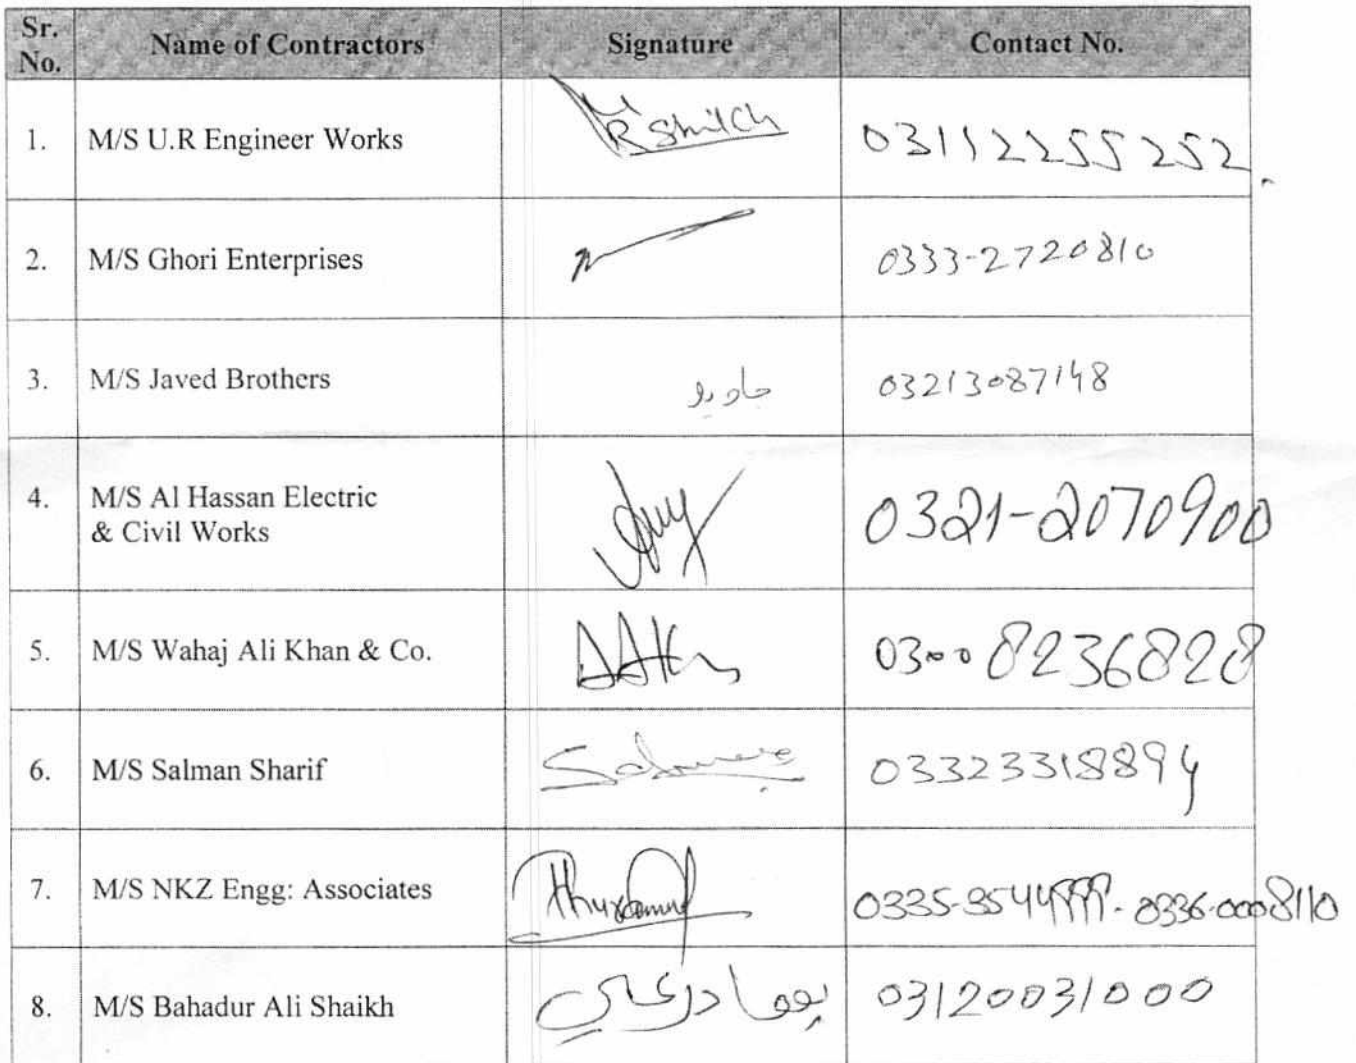 Sr. No. Name of Contractors Signature Contact No.
1. M/S U.R Engineer Works 03112255252.
2. M/S Ghori Enterprises 0333-2720810
3. M/S Javed Brothers جاويد 03213087148
4. M/S Al Hassan Electric
& Civil Works 0321-2070900
5. M/S Wahaj Ali Khan & Co. 0300 8236828
6. M/S Salman Sharif 03323318894
7. M/S NKZ Engg: Associates 0336-0008110
8. M/S Bahadur Ali Shaikh 03120031000